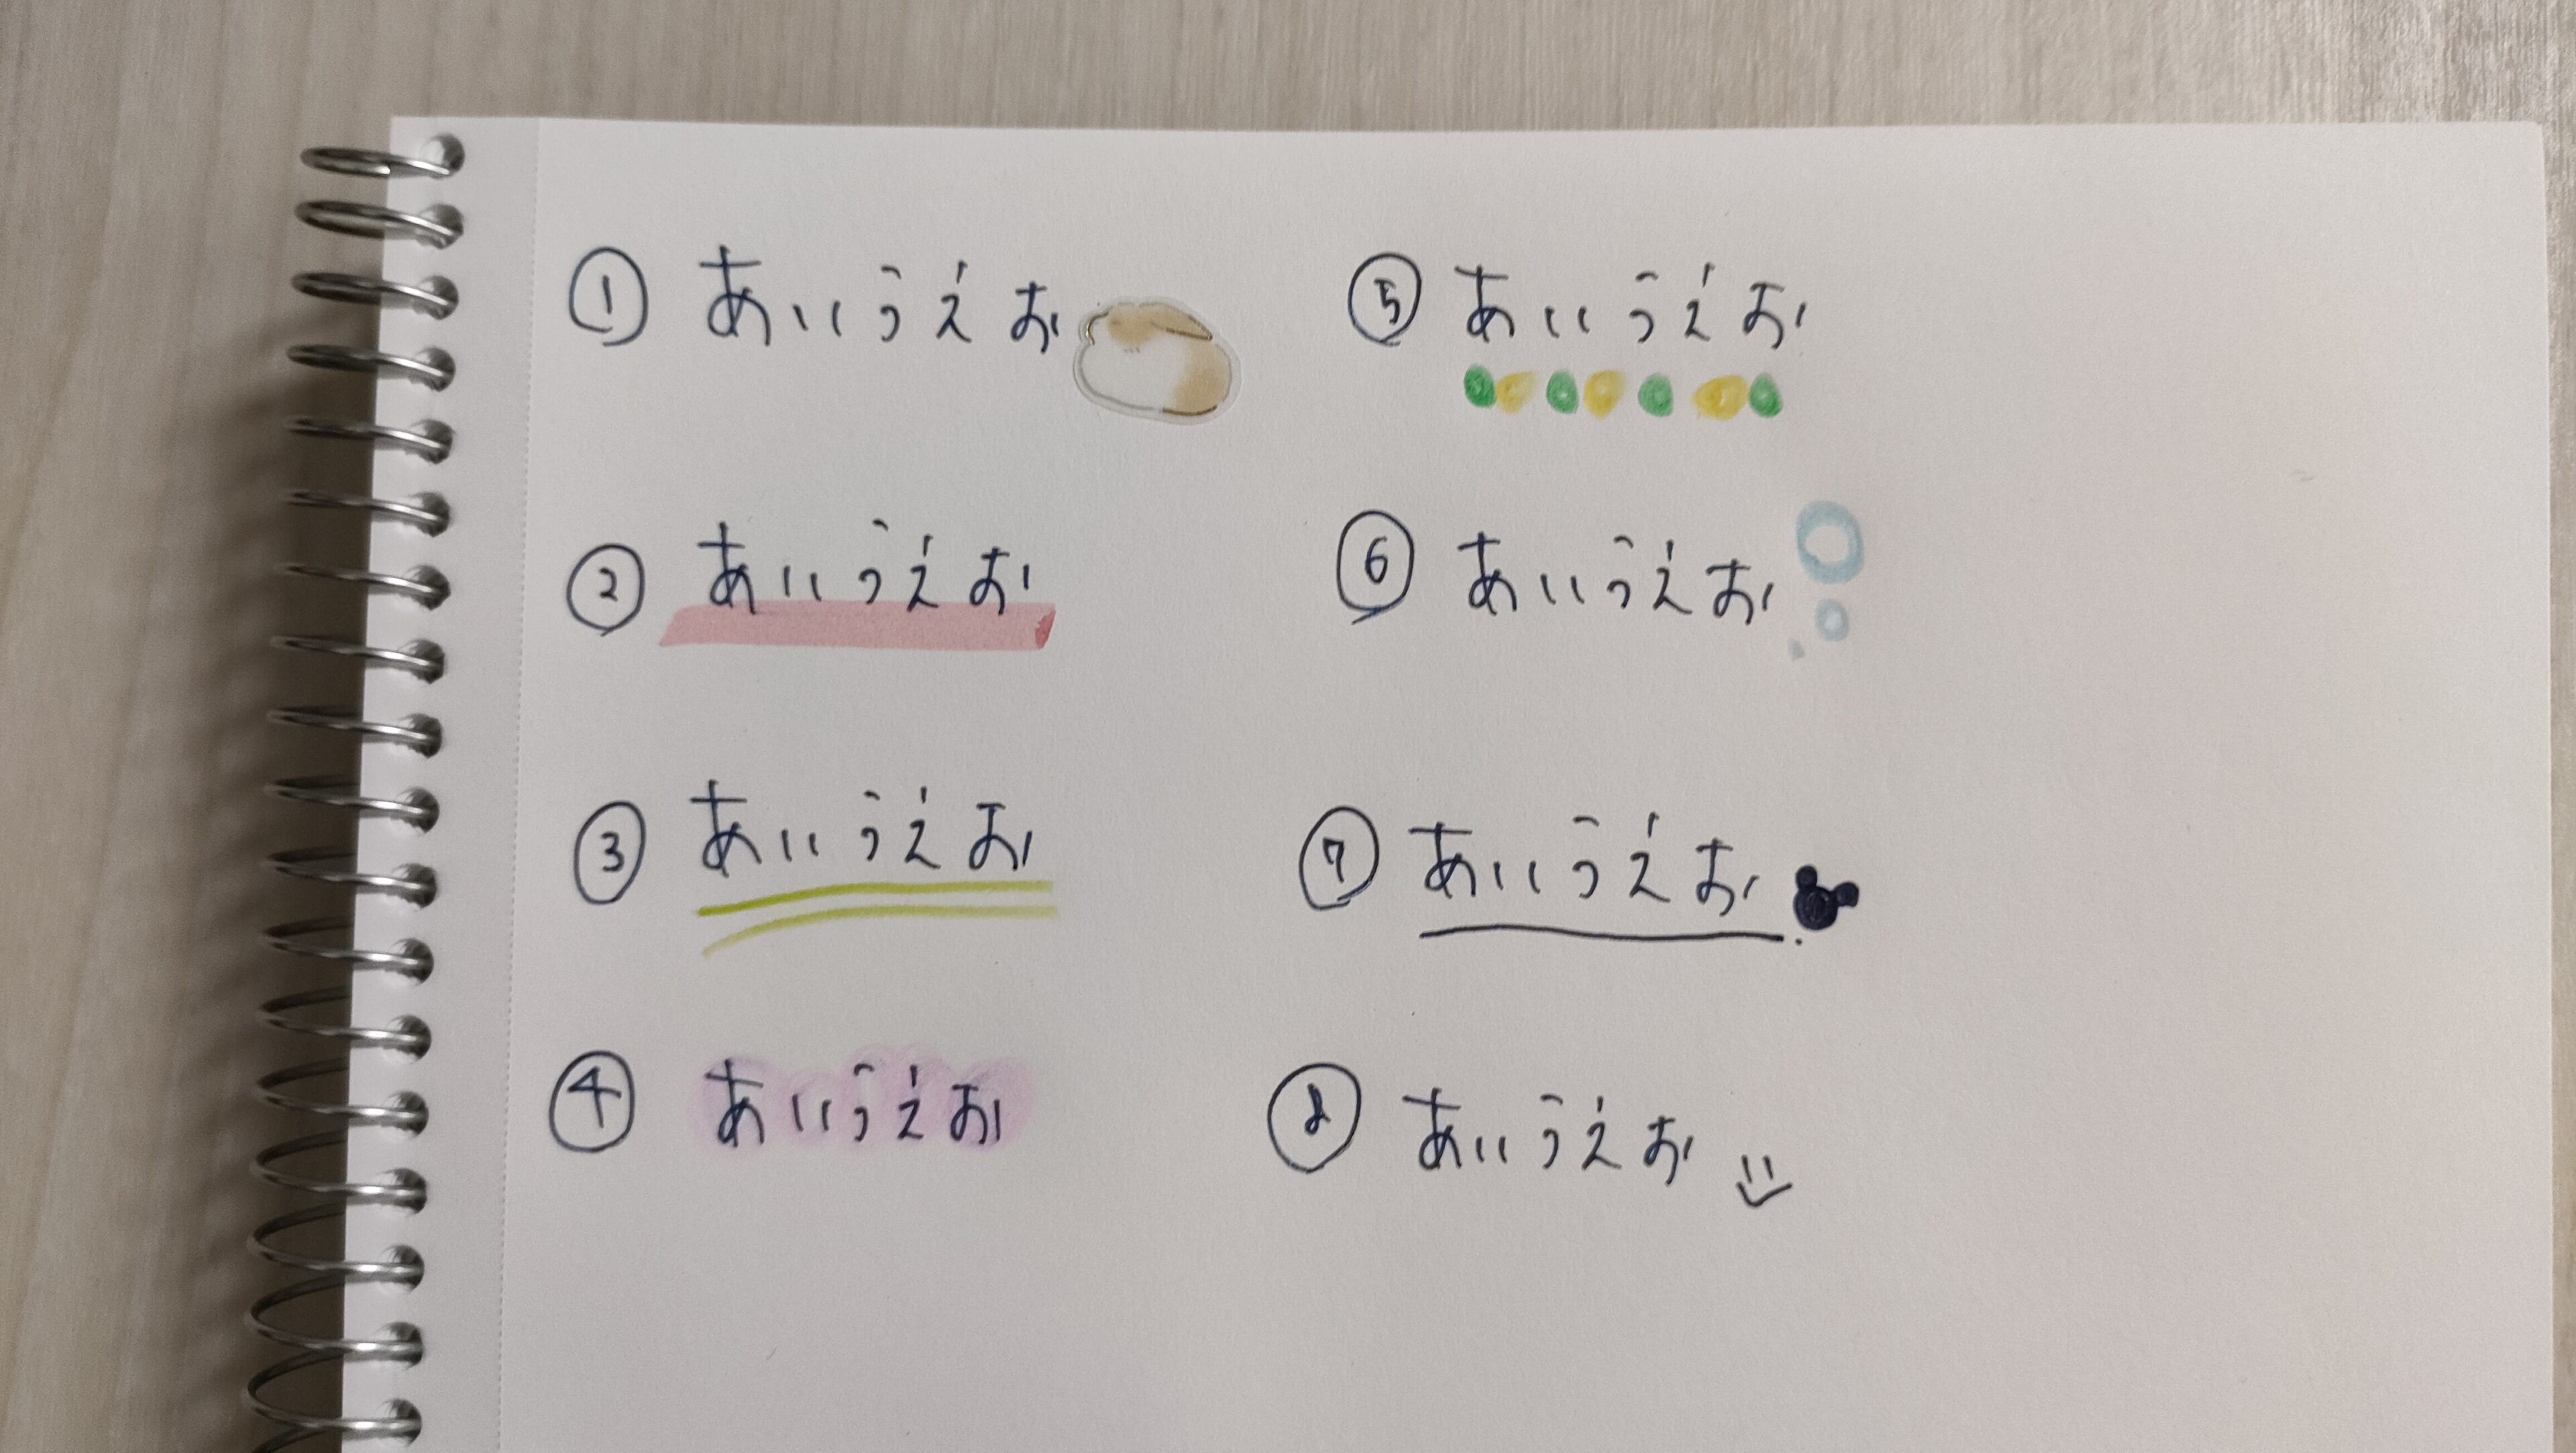 ① あいうえお
② あいうえお
③ あいうえお
④ あいうえお
⑤ あいうえお
⑥ あいうえお
⑦ あいうえお
⑧ あいうえお